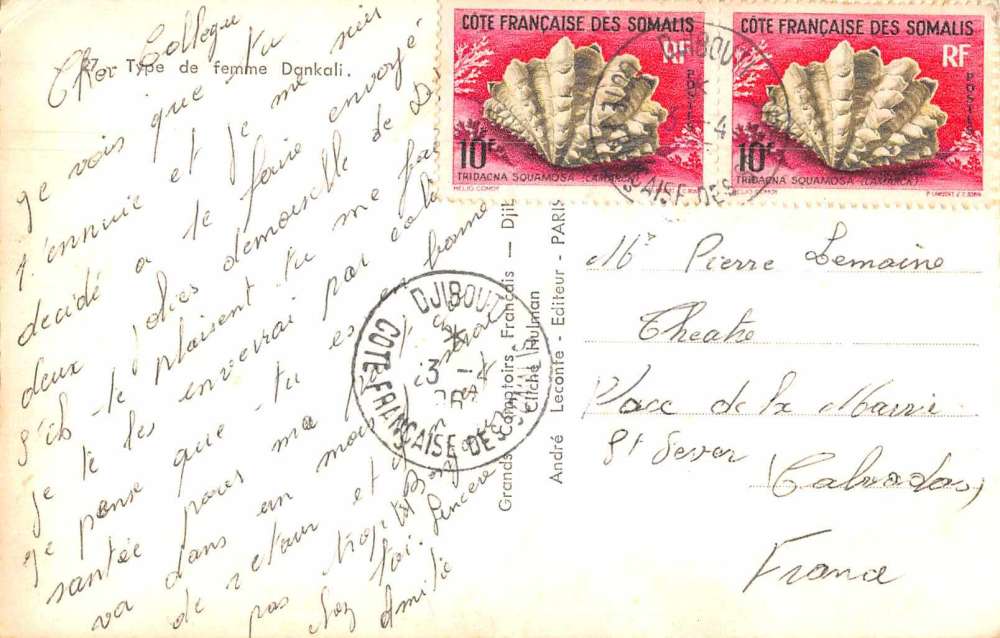 27 - Type de femme Dankali.
Cher Collegue
je vois que tu
t'ennuie et je me suis
decidé a te faire envoyé
deux jolies demoiselle de
S'ils te plaisent tu me
je te les enverrai par colis
je pense que tu es en bonne
santée
va dans un mois
de retour et
pas chez toi. Sincere
Amitie
CÔTE FRANÇAISE DES SOMALIS
RF
POSTES
10F
TRIDACNA SQUAMOSA (LAMARCK)
HELIO COMOY
CÔTE FRANÇAISE DES SOMALIS
RF
POSTES
10F
TRIDACNA SQUAMOSA (LAMARCK)
DJIBOUTI
COTE FRANÇAISE DES SOMALIS
Grands Comptoirs Français — Djib
Cliché Hulman
André Leconte - Editeur - PARIS
Mr Pierre Lemoine
Theatre
Place de la Mairie
St Sever
Calvados
France